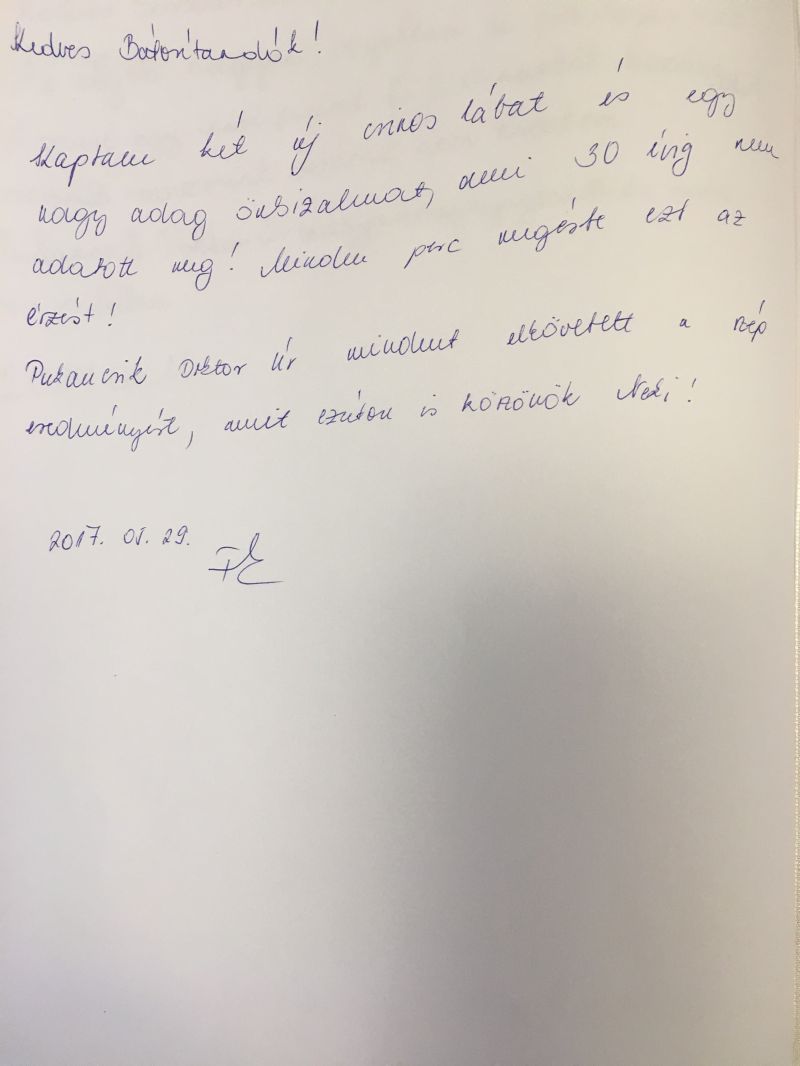 Kedves Bátorítandók!
Kaptam két új csinos lábat és egy
nagy adag önbizalmat, ami 30 évig nem
adatott meg! Minden perc megérte ezt az
érzést!
Pukancsik Doktor Úr mindent elkövetett a szép
eredményért, amit ezúton is köszönök Neki!
2017. 05. 29.